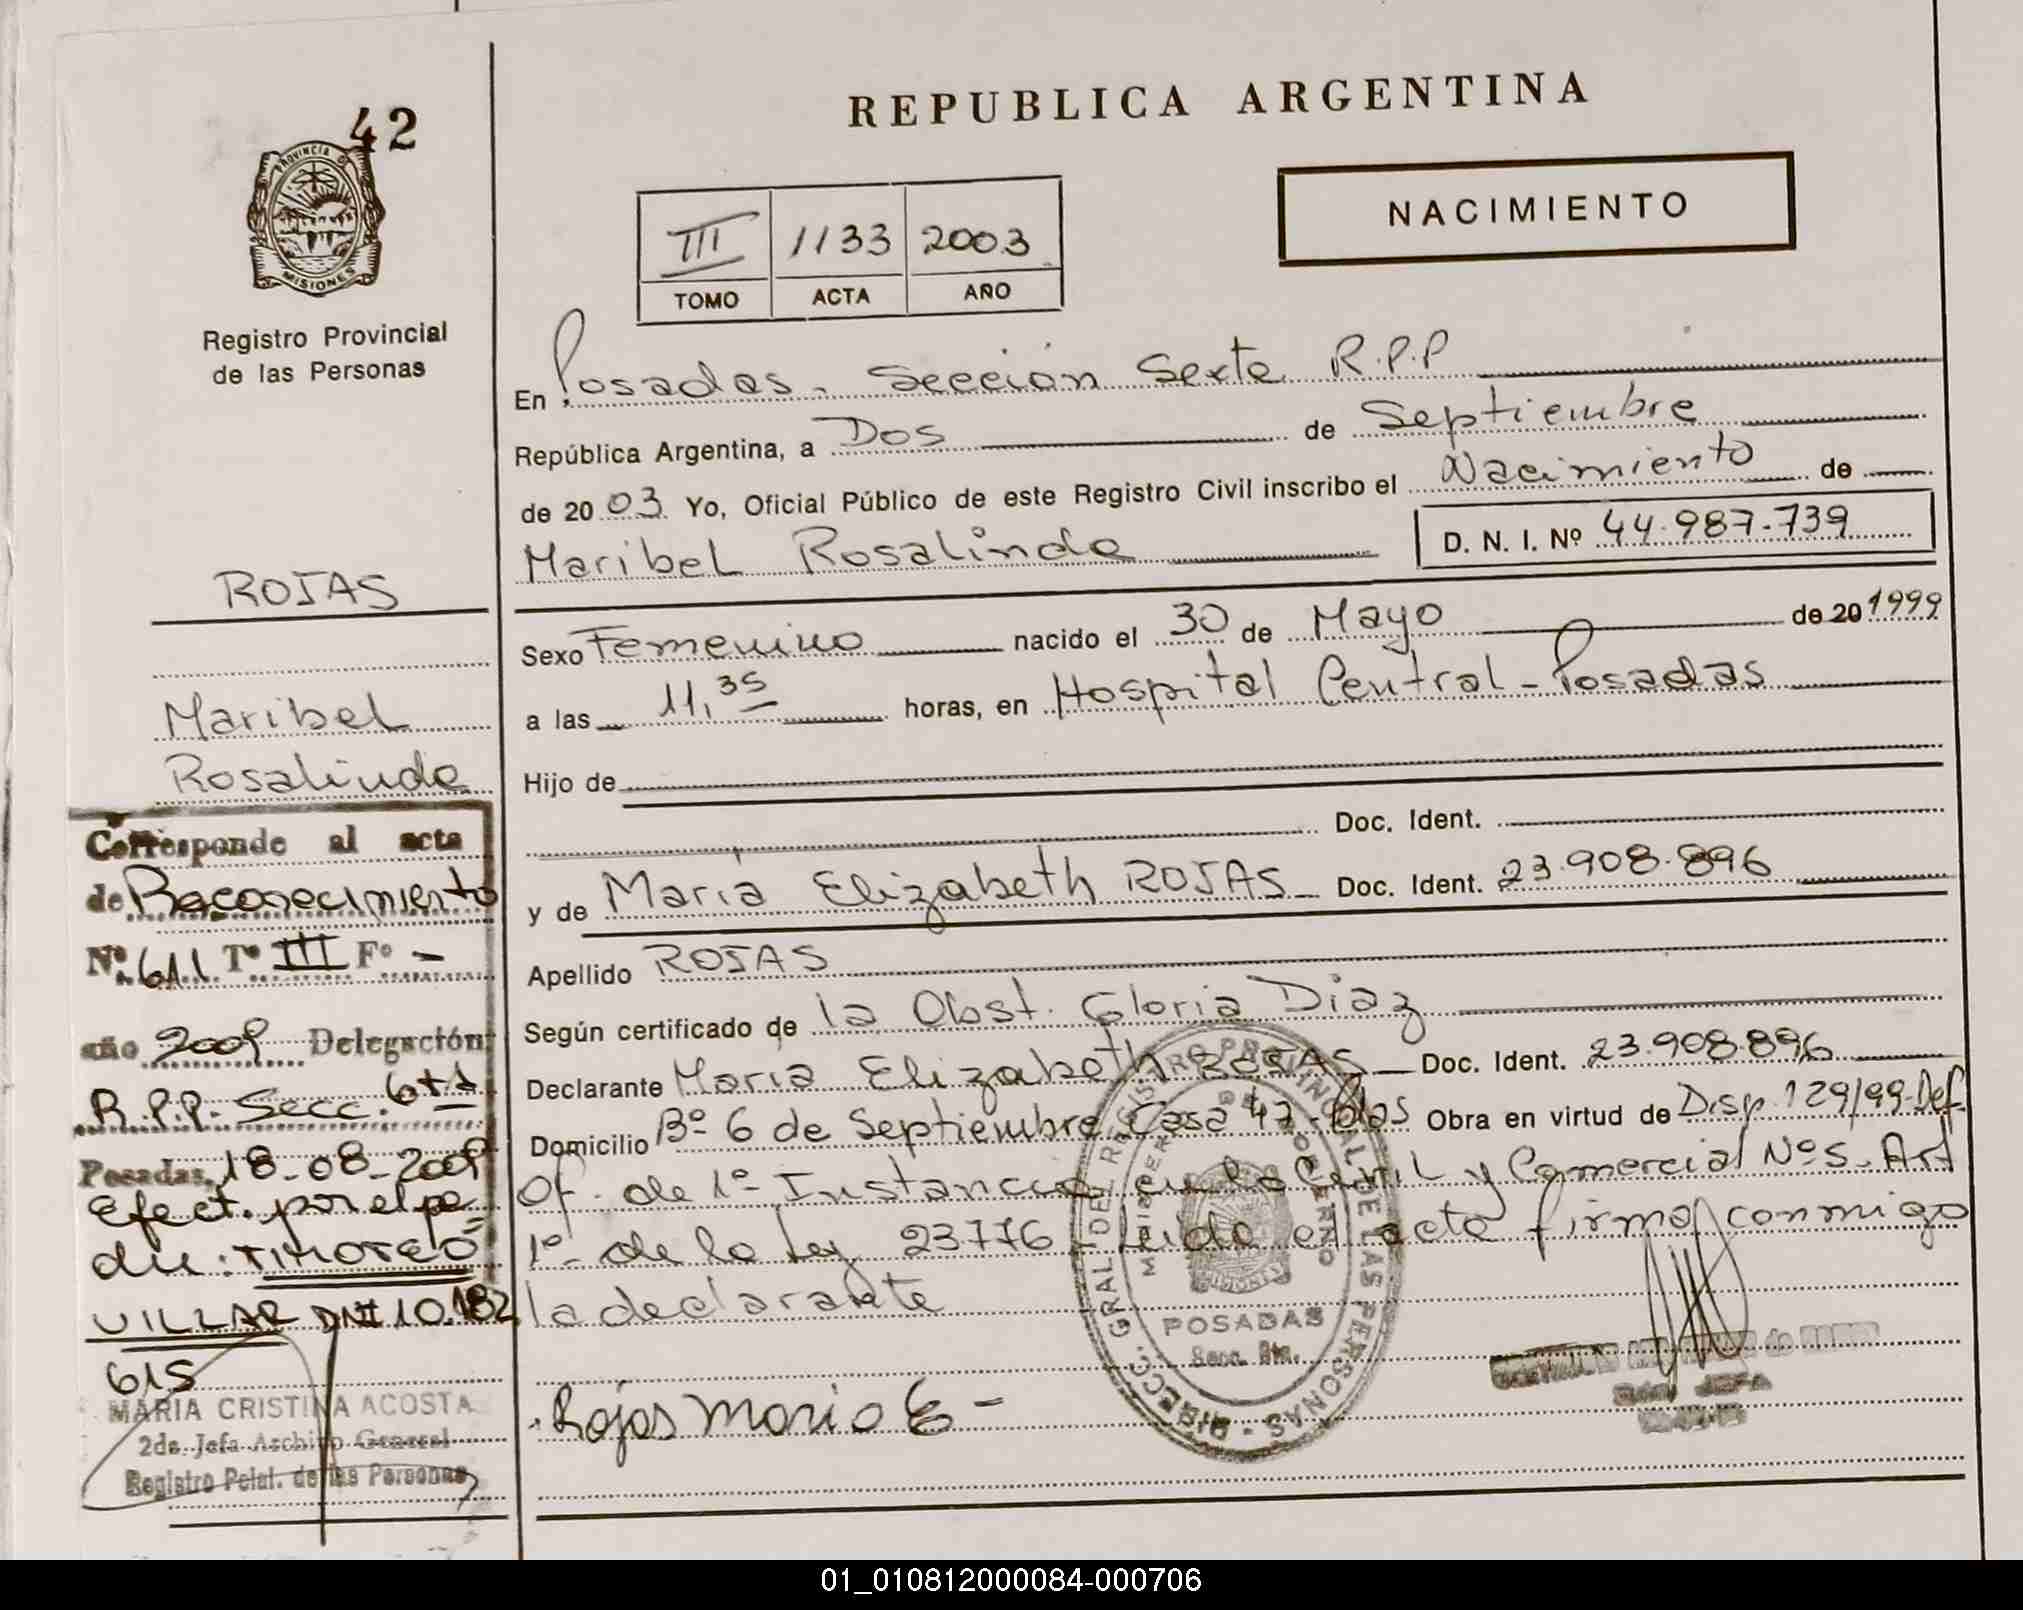 42
PROVINCIA D
MISIONES
Registro Provincial
de las Personas
REPUBLICA ARGENTINA
NACIMIENTO
III 1133 2003
TOMO ACTA AÑO
En Posadas. Sección Sexta R.P.P
República Argentina, a Dos de Septiembre
de 2003 Yo, Oficial Público de este Registro Civil inscribo el Nacimiento de
Maribel Rosalinda D. N. I. Nº 44.987.739
Sexo Femenino nacido el 30 de Mayo de 20 1999
a las 11,35 horas, en Hospital Central - Posadas
Hijo de
Doc. Ident.
y de María Elizabeth ROJAS Doc. Ident. 23.908.896
Apellido ROJAS
Según certificado de la Obst. Gloria Diaz
Declarante María Elizabeth ROJAS Doc. Ident. 23.908.896
Domicilio Bº 6 de Septiembre Casa 47 - Pdas Obra en virtud de Disp 129/99-Def.
Of. de 1º Instancia en lo Civil y Comercial Nº 5. Art
1º de la Ley 23776 Leida el acta firma conmigo
la declarante
Rojas Maria E -
ROJAS
Maribel
Rosalinda
Corresponde al acta
de Reconocimiento
Nº 611 Tº III Fº -
año 2009 Delegación
R.P.P. Secc. 6ta
Posadas, 18-08-2009
Efect. por el pa
du: TIMOTEO
VILLAR DNI 10.182
615
MARIA CRISTINA ACOSTA
2da. Jefa Archivo General
Registro Pcial. de las Personas
DIRECC. GRAL DEL REGISTRO PROVINCIAL DE LAS PERSONAS
MINISTERIO DE GOBIERNO
MISIONES
POSADAS
Secc. 6ta.
JEFA
01_010812000084-000706